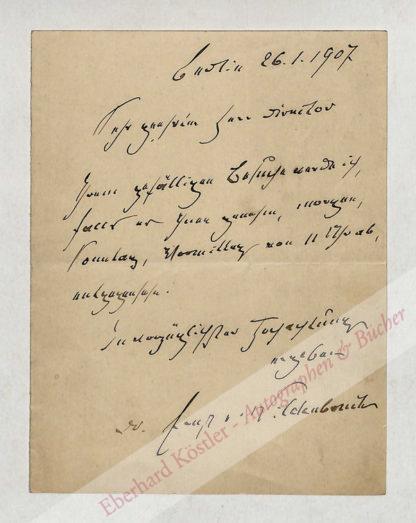 Berlin 26.1.1907
Sehr geehrter Herr Direktor
Ihrem gefälligen Besuche werde ich,
falls es Ihnen genehm, morgen,
Sonntag, Vormittag von 11 Uhr ab,
entgegensehen.
In vorzüglichster Hochachtung
ergebenst
Ernst v. Wildenbruch
Eberhard Köstler - Autographen & Bücher